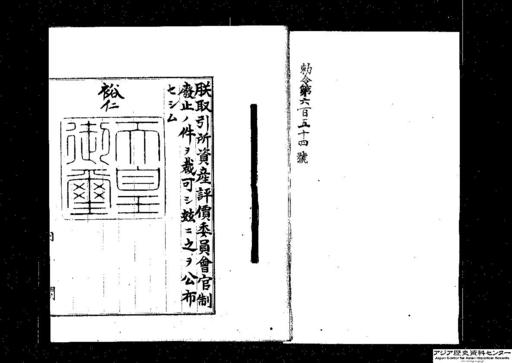 勅令第六百五十四號
朕取引所資産評價委員會官制
廢止ノ件ヲ裁可シ玆ニ之ヲ公布
セシム
裕仁
天皇
御璽
内閣
アジア歴史資料センター
Japan Center for Asian Historical Records